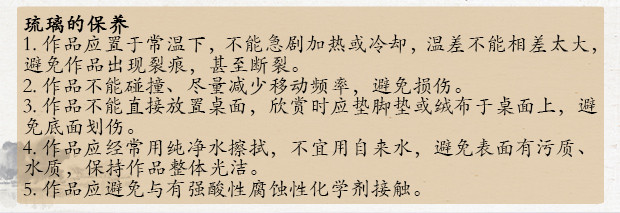 琉璃的保养
1. 作品应置于常温下，不能急剧加热或冷却，温差不能相差太大，
避免作品出现裂痕，甚至断裂。
2. 作品不能碰撞、尽量减少移动频率，避免损伤。
3. 作品不能直接放置桌面，欣赏时应垫脚垫或绒布于桌面上，避
免底面划伤。
4. 作品应经常用纯净水擦拭，不宜用自来水，避免表面有污质、
水质，保持作品整体光洁。
5. 作品应避免与有强酸性腐蚀性化学剂接触。